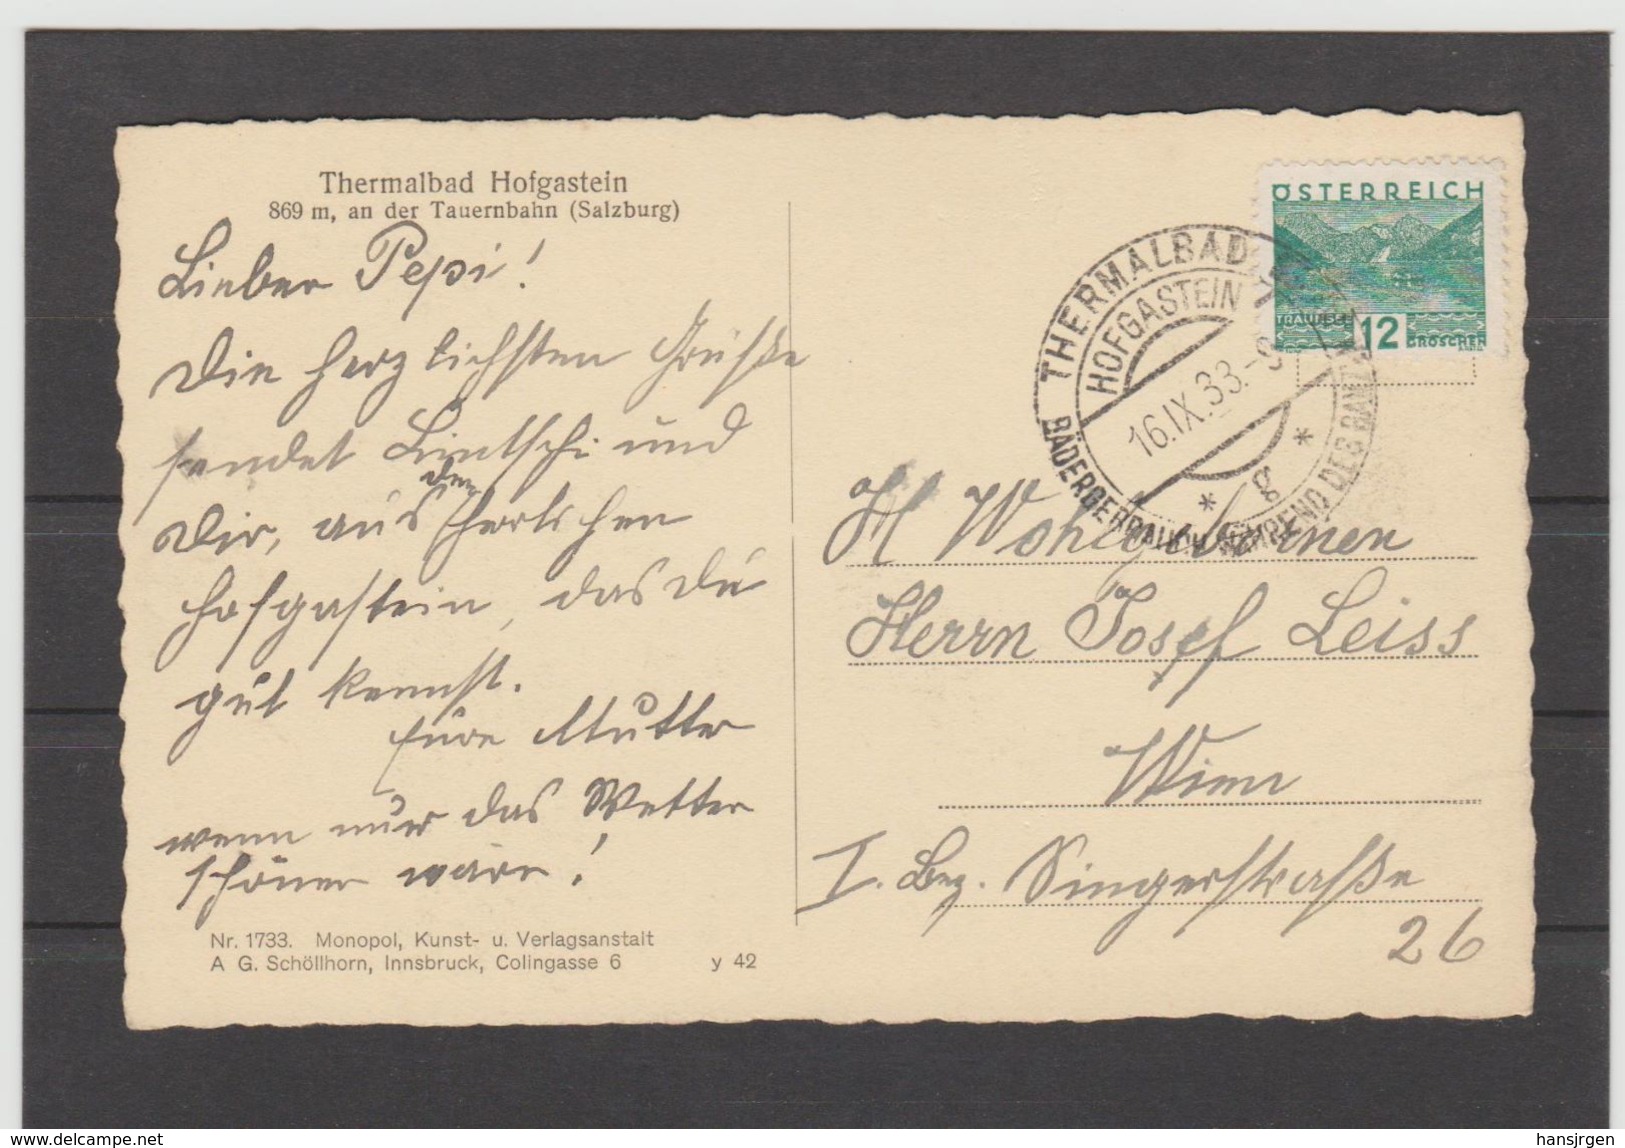 Thermalbad Hofgastein
869 m, an der Tauernbahn (Salzburg)
Lieber Pepi!
Die herzlichsten Grüße
sendet Lintschi und
Dir, aus dem herrlichen
Hofgastein, das Du
gut kennst.
Eure Mutter
wenn nur das Wetter
schöner wäre!
Nr. 1733. Monopol, Kunst- u. Verlagsanstalt
A G. Schöllhorn, Innsbruck, Colingasse 6 y 42
ÖSTERREICH
TRAUNSEE 12 GROSCHEN
THERMALBAD
HOFGASTEIN
16.IX.33.-9
* g *
BÄDERGEBRAUCH WÄHREND DES
Wohlgebornen
Herrn Josef Leiss
Wien
I. Bez. Singerstraße
26
delcampe.net
hansjrgen